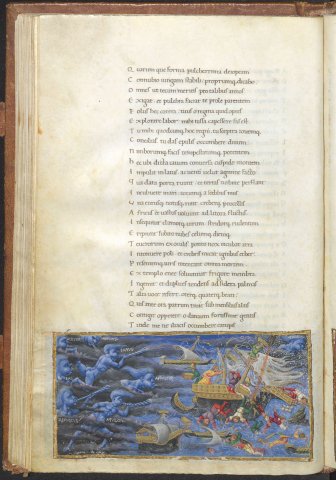 Q uarum que forma pulcherrima deiopeam
C onnubio iungam stabili, propriamq; dicabo
O mnes ut tecum meritis pro talibus annos
E xigat et pulchra faciat te prole parentem
E olus hec contra, tuus o regina quid optes
E xplorare labor, mihi iussa capessere fas est
T u mihi quodcunq; hoc regni, tu sceptra iouemq;
C oncilias, tu das epulis accumbere diuum
N imborumq; facis tempestatumq; potentem
H ec ubi dicta cauum conuersa cuspide montem
I mpulit in latus, ac uenti uelut agmine facto
Q ua data porta ruunt, et terras turbine perflant
I ncubuere mari, totumq; a sedibus imis
V na eurusq; notusq; ruunt, creberq; procellis
A fricus et uastos uoluunt ad littora fluctus
I nsequitur clamorq; uirum, stridorq; rudentum
E ripiunt subito nubes celumq; diemq;
T eucrorum ex oculis ponto nox incubat atra
I ntonuere poli et crebris micat ignibus ether
P resentemq; uiris intentant omnia mortem
E xtemplo enee soluuntur frigore membra
I ngemit et duplices tendens ad sidera palmas
T alia uoce refert, o terq; quaterq; beati
Q uis ante ora patrum troie sub menibus altis
C ontigit oppetere, o danaum fortissime gentis
T itide me ne iliacis occumbere campis